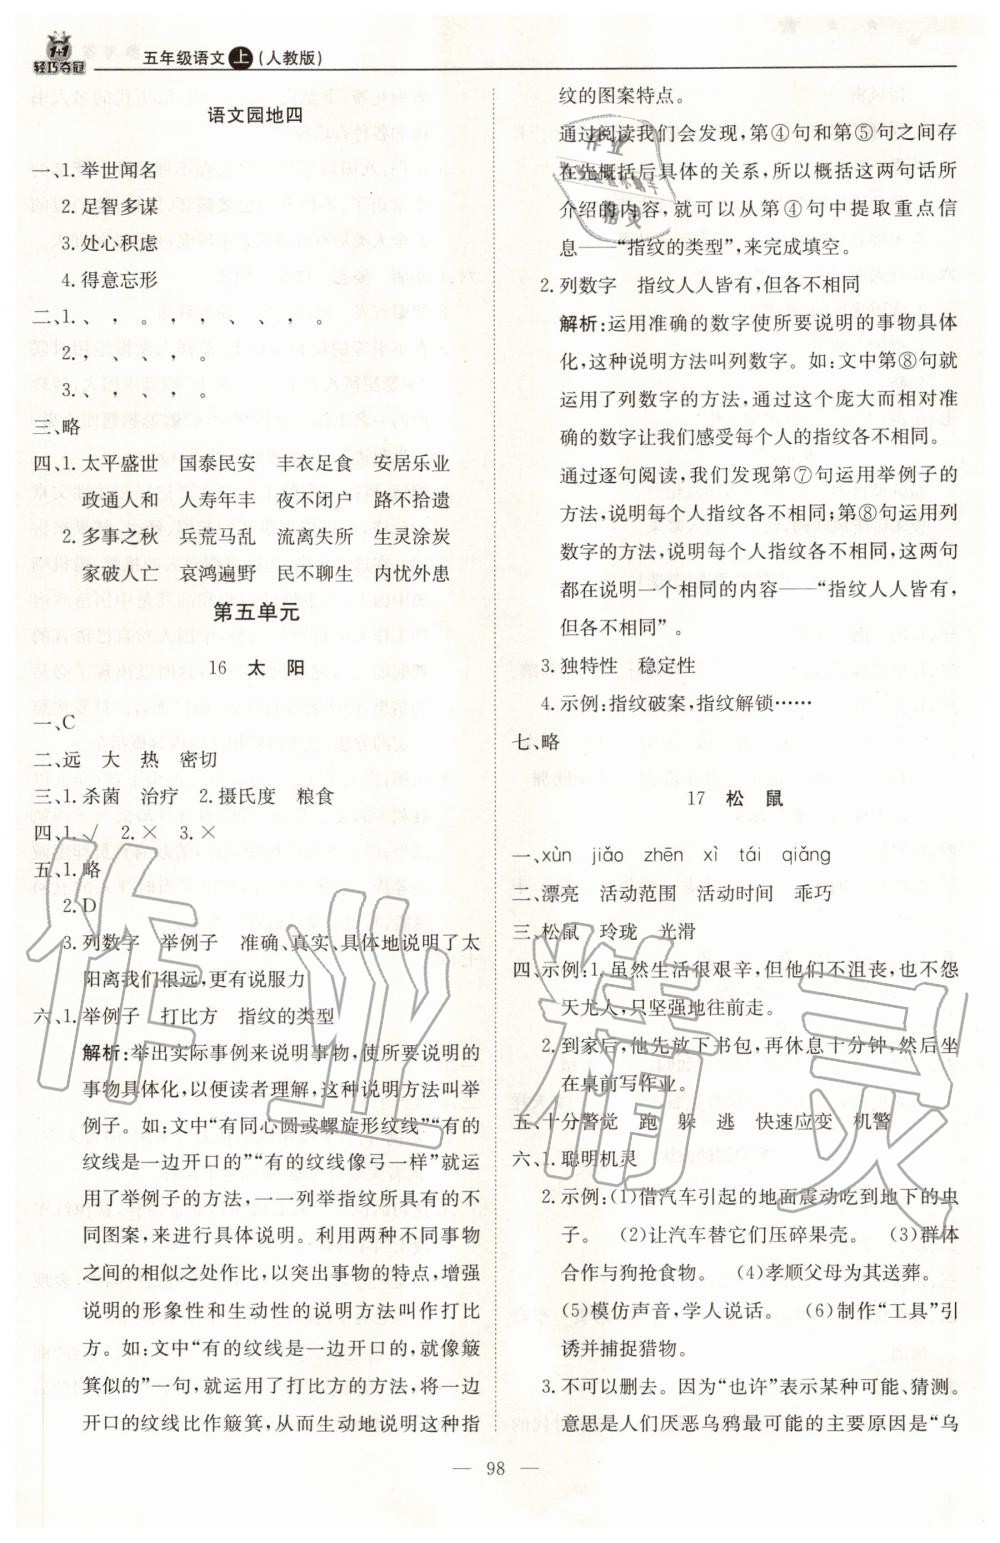 1+1
轻巧夺冠
五年级语文上(人教版)
语文园地四
一、1.举世闻名
2.足智多谋
3.处心积虑
4.得意忘形
三、略
四、1.太平盛世 国泰民安 丰衣足食 安居乐业
政通人和 人寿年丰 夜不闭户 路不拾遗
2.多事之秋 兵荒马乱 流离失所 生灵涂炭
家破人亡 哀鸿遍野 民不聊生 内忧外患
第五单元
16 太 阳
一、C
二、远 大 热 密切
三、1.杀菌 治疗 2.摄氏度 粮食
四、1.√ 2.× 3.×
五、1.略
2.D
3.列数字 举例子 准确、真实、具体地说明了太
阳离我们很远,更有说服力
六、1.举例子 打比方 指纹的类型
解析:举出实际事例来说明事物,使所要说明的
事物具体化,以便读者理解,这种说明方法叫举
例子。如:文中“有同心圆或螺旋形纹线”“有的
纹线是一边开口的”“有的纹线像弓一样”就运
用了举例子的方法,一一列举指纹所具有的不
同图案,来进行具体说明。利用两种不同事物
之间的相似之处作比,以突出事物的特点,增强
说明的形象性和生动性的说明方法叫作打比
方。如:文中“有的纹线是一边开口的,就像簸
箕似的”一句,就运用了打比方的方法,将一边
开口的纹线比作簸箕,从而生动地说明了这种指
纹的图案特点。
通过阅读我们会发现,第④句和第⑤句之间存
在先概括后具体的关系,所以这两句话所
介绍的内容,就可以从第④句中提取重点信
息——“指纹的类型”,来完成填空。
2.列数字 指纹人人皆有,但各不相同
解析:运用准确的数字使所要说明的事物具体
化,这种说明方法叫列数字。如:文中第⑧句就
运用了列数字的方法,通过这个庞大而相对准
确的数字让我们感受每个人的指纹各不相同。
通过逐句阅读,我们发现第⑦句运用举例子的
方法,说明每个人指纹各不相同;第⑧句运用列
数字的方法,说明每个人指纹各不相同,这两句
都在说明一个相同的内容——“指纹人人皆有,
但各不相同”。
3.独特性 稳定性
4.示例:指纹破案,指纹解锁……
七、略
17 松 鼠
一、xùn jiǎo zhēn xì tái qiǎng
二、漂亮 活动范围 活动时间 乖巧
三、松鼠 玲珑 光滑
四、示例:1.虽然生活很艰辛,但他们不沮丧,也不怨
天尤人,只坚强地往前走。
2.到家后,他先放下书包,再休息十分钟,然后坐
在桌前写作业。
五、十分警觉 跑 躲 逃 快速应变 机警
六、1.聪明机灵
2.示例:(1)借汽车引起的地面震动吃到地下的虫
子。 (2)让汽车替它们压碎果壳。 (3)群体
合作与狗抢食物。 (4)孝顺父母为其送葬。
(5)模仿声音,学人说话。 (6)制作“工具”引
诱并捕捉猎物。
3.不可以删去。因为“也许”表示某种可能、猜测。
意思是人们厌恶乌鸦最可能的主要原因是“乌
— 98 —
作业精灵